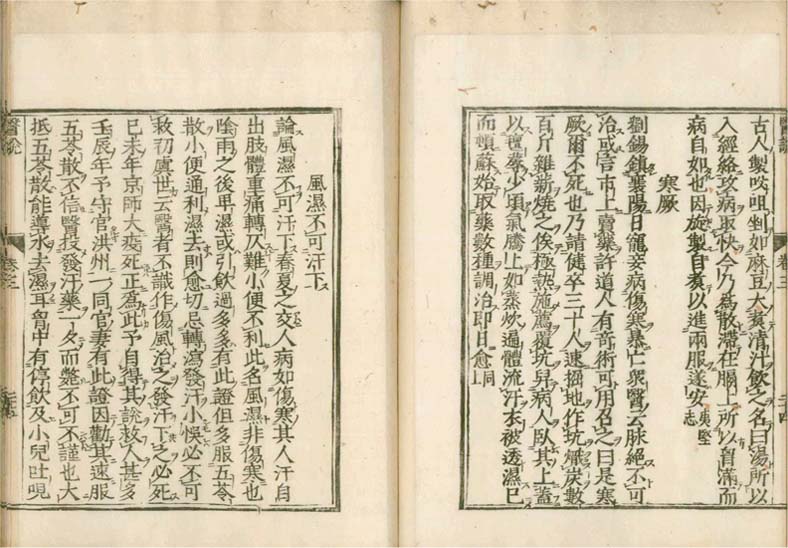 醫說　卷三　二十四
古人製㕮咀剉如麻豆大煑清汁飲之名曰湯所以
入經絡攻病取快今乃為散滯在膈上所以胷滿而
病自如也因旋製自煑以進兩服遂安夷堅志
寒厥
劉錫鎮襄陽日寵妾病傷寒暴亡衆醫云脉絕不可
治或言市上賣藥許道人有奇術可用召之曰是寒
厥爾不死也乃請健卒三十人速掘地作坑熾炭數
百斤雜薪燒之俟極熱施薦覆坑舁病人臥其上蓋
以氊蓐少頃氣騰上如蒸炊遍體流汗衣被透濕已
而頓蘇始取藥數種調治即日愈同上
風濕不可汗下
論風濕不可汗下春夏之交人病如傷寒其人汗自
出肢體重痛轉仄難小便不利此名風濕非傷寒也
陰雨之後卑濕或引飲過多多有此證但多服五苓
散小便通利濕去則愈切忌轉瀉發汗小悞必不可
救初虞世云醫者不識作傷風治之發汗下之必死
已未年京師大疫死正為此予自得其說救人甚多
壬辰年予守官洪州一同官妻有此證因勸其速服
五苓散不信醫投發汗藥一夕而斃不可不謹也大
抵五苓散能導水去濕耳胷中有停飲及小兒吐哯
醫說　卷三